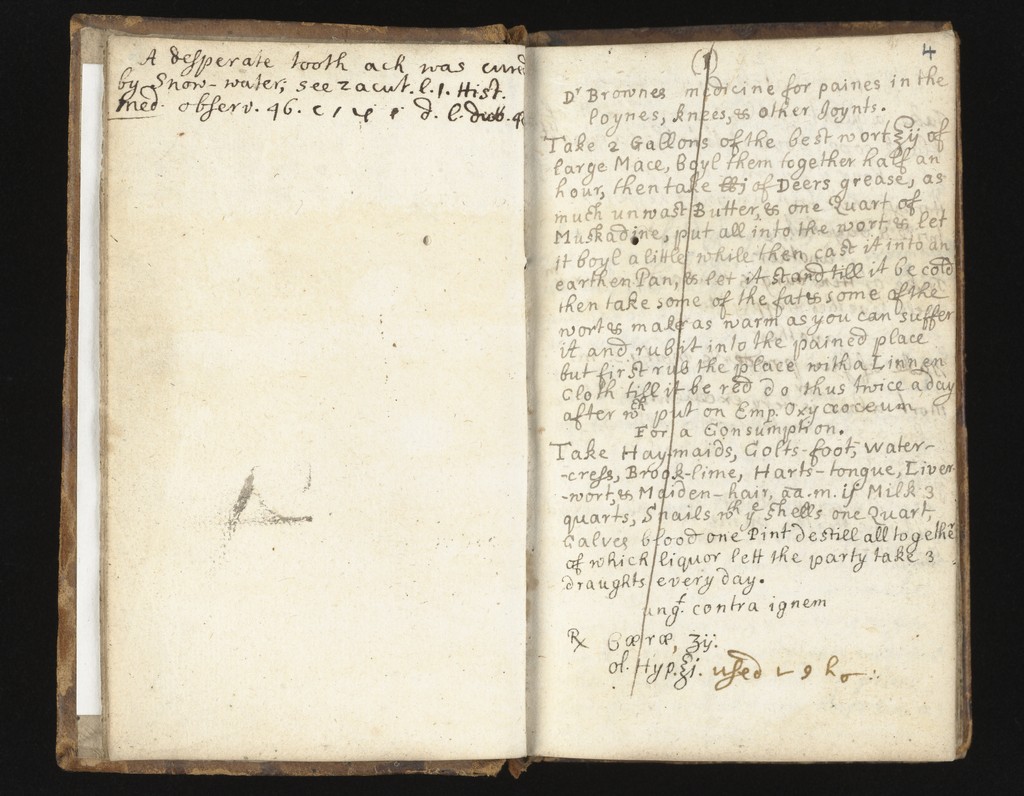 A desperate tooth ach was cured
by Snow-water; see zacut. l. 1. Hist.
med. observ. 46. d. l. dub. 4
4
(1)
Dr Brownes medicine for paines in the
loynes, knees, & other Joynts.
Take 2 Gallons of the best wort ℥ij of
large Mace, boyl them together half an
hour, then take ℔j of Deers grease, as
much unwast Butter, & one Quart of
Muskadine, put all into the wort, & let
it boyl a little while then cast it into an
earthen Pan, & let it stand till it be cold
then take some of the fat & some of the
wort & make as warm as you can suffer
it and rub it into the pained place
but first rub the place with a Linnen
Cloth till it be red do thus twice a day
after wch put on Emp. Oxycroceum
For a Consumption.
Take Haymaids, Colts-foot, water-
-cress, Brook-lime, Harts-tongue, Liver-
-wort, & Maiden-hair, aa. m. iſ Milk 3
quarts, Snails wth ye Shells one Quart,
Calves blood one Pint destill all together
of which liquor lett the party take 3
draughts every day.
ungt. contra ignem
℞ Cæræ, ʒij.
ol. Hyp. ℥j. used